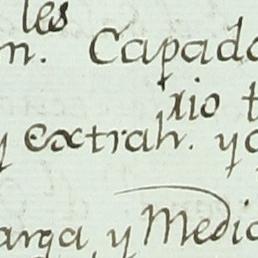 les
n. Capado
rio t
y extrah. y o
arga, y Medic